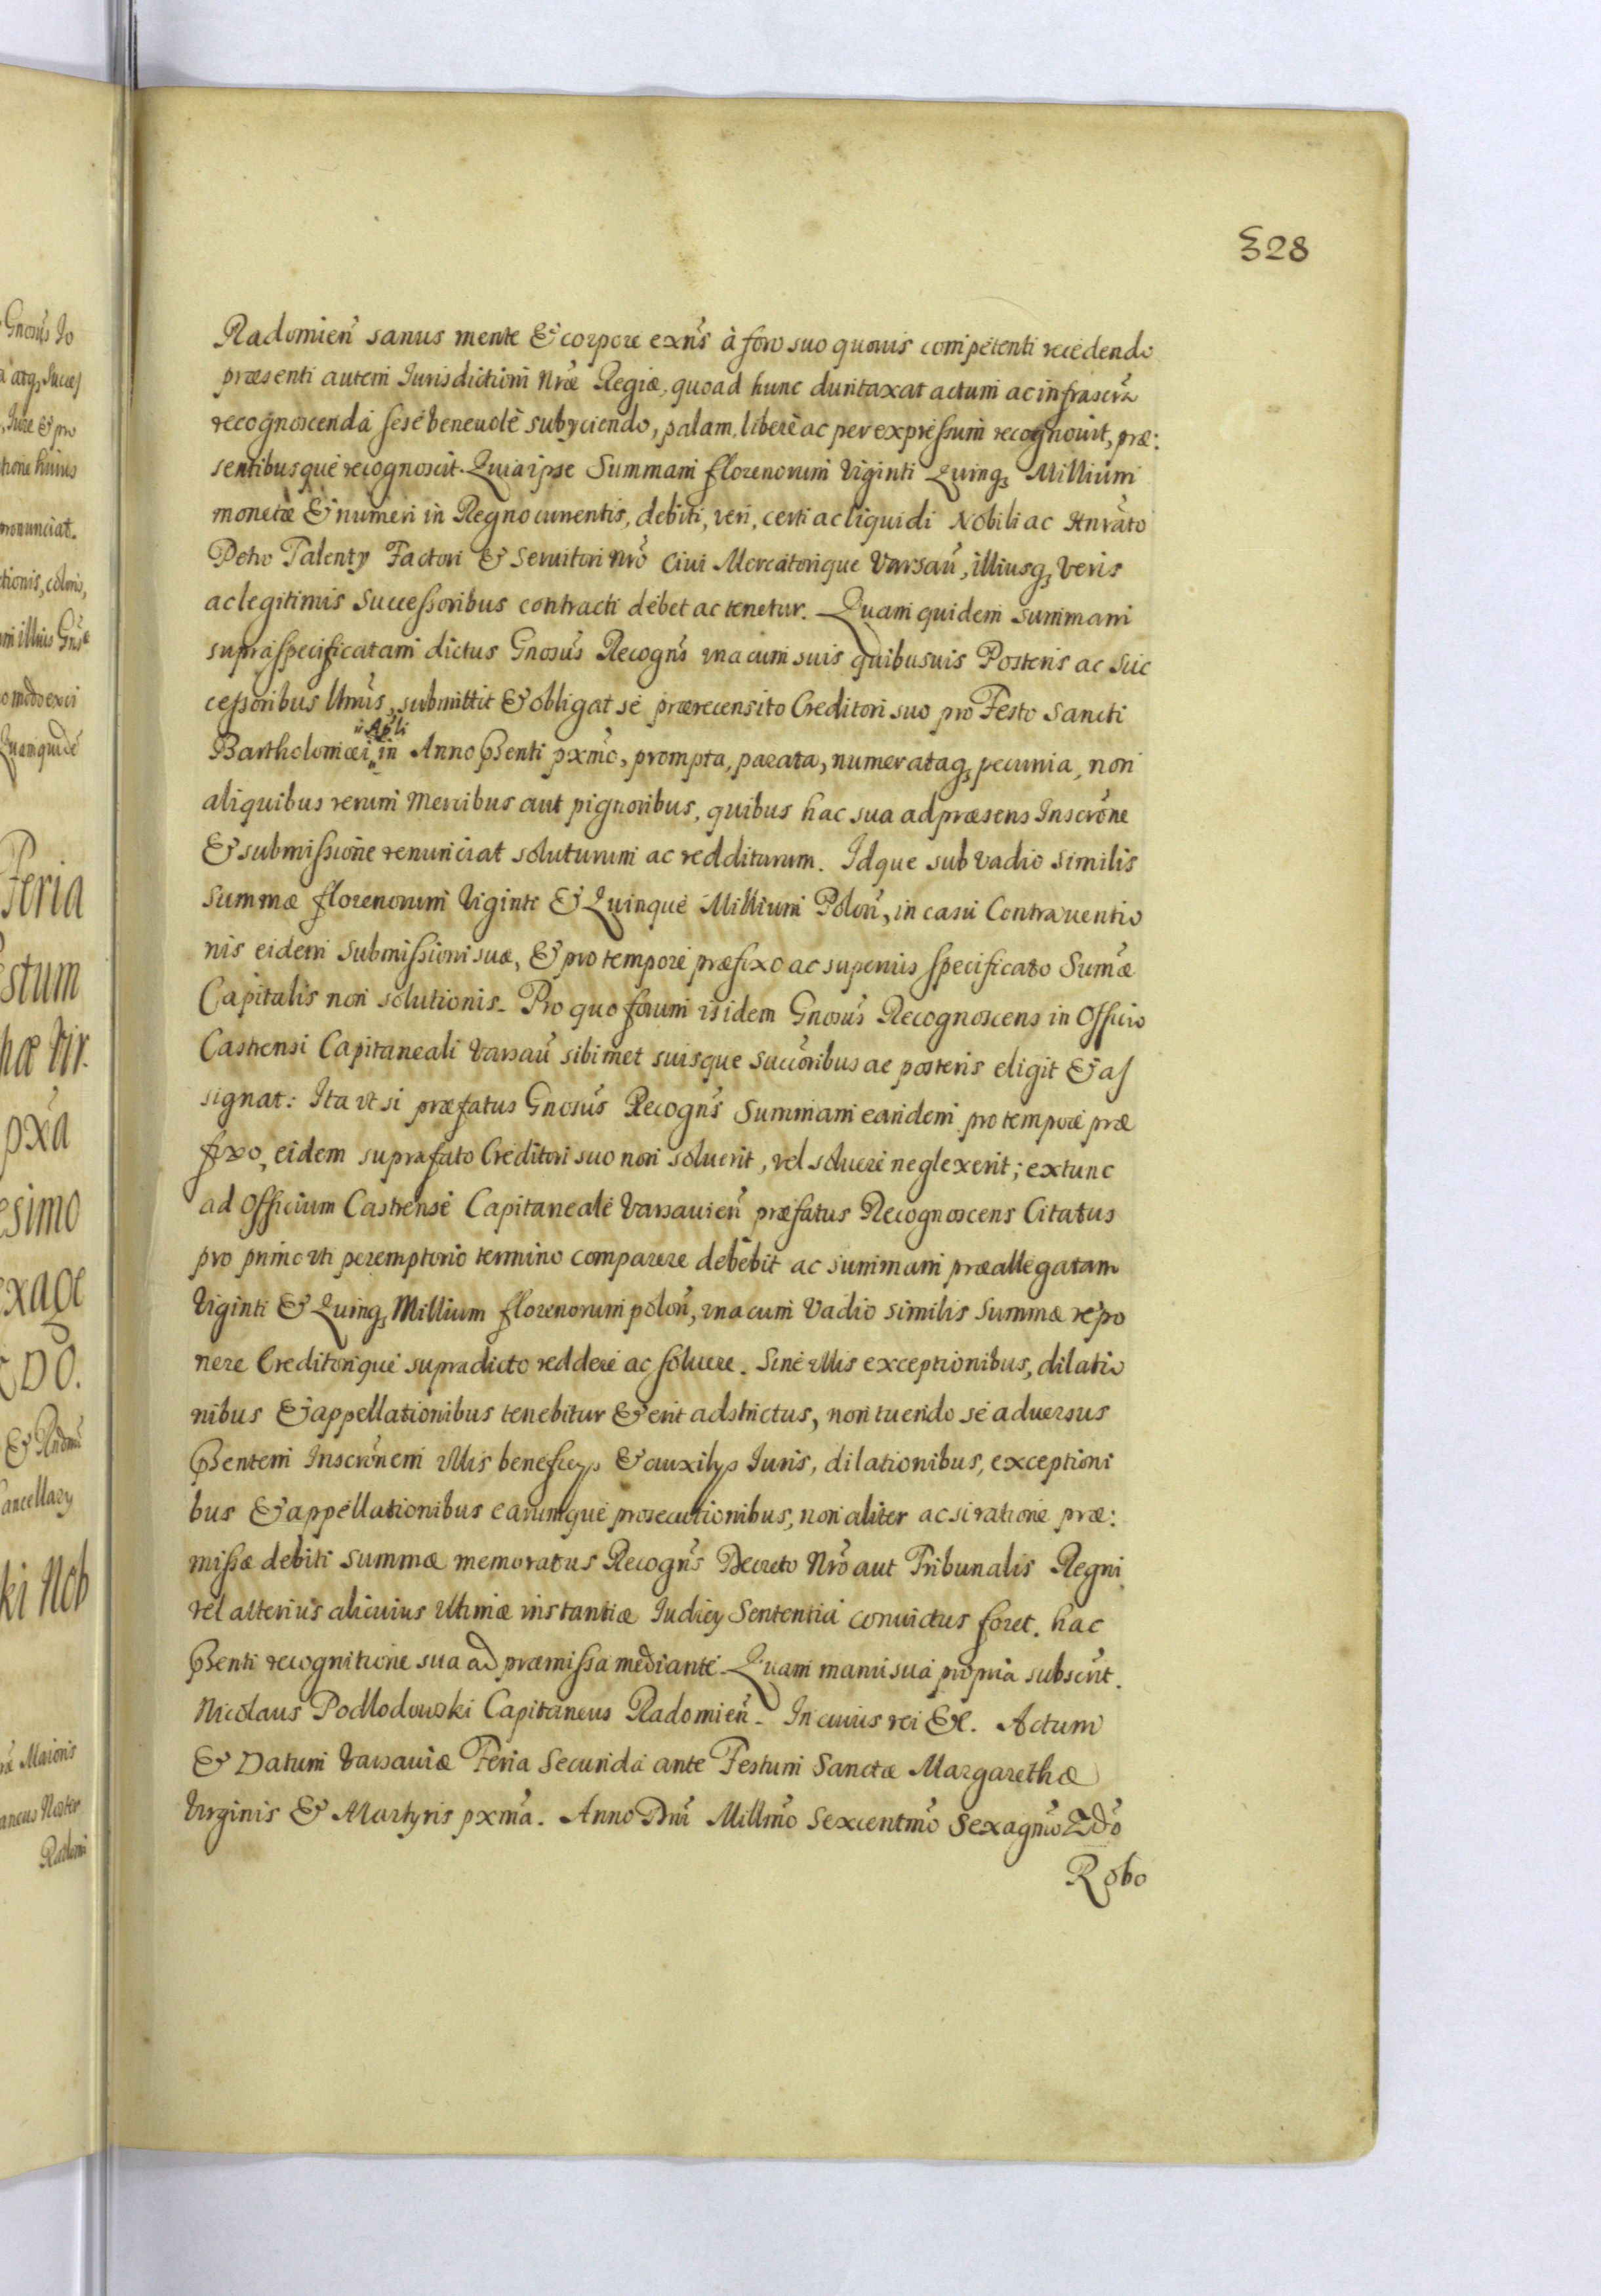 328
Radomien̄ sanus mente & corpore exn̄s à foro suo quouis competenti recedendo
præsenti autem Iurisdictioni Nr̄æ Regiæ, quoad hunc duntaxat actum ac infrascr̄a
recognoscenda sese beneuolè subijciendo, palam, liberè ac per expressum recognouit, præ:
sentibusque recognoscit. Quia ipse Summam florenorum Viginti Quinq3 Millium
monetæ & numeri in Regno currentis, debiti, veri, certi ac liquidi Nobili ac Hnrāto
Petro Talenty Factori & Seruitori Nrō Ciui Mercatorique Varsau̅, illiusq3 Veris
ac legitimis Successoribus contracti debet ac tenetur. Quam quidem Summam
supraspecificatam dictus Gnosūs Recogn̄s vna cum suis quibusuis Posteris ac Suc
cessoribus Vniūs, submittit & obligat se prærecensito Creditori suo pro Festo Sancti
Apl̄i
Bartholomæi in Anno p̄senti pxmō, prompta, parata, numerataq3 pecunia, non
aliquibus rerum Mercibus aut pignoribus, quibus hac sua ad præsens Inscrōne
& submissione renunciat soluturum ac redditurum. Idque sub vadio similis
Summæ florenorum Viginti & Quinque Millium Polon̄, in casu Contrauentio
nis eidem Submissioni suæ, & pro tempore præfixo ac superius specificato Sum̄æ
Capitalis non solutionis. Pro quo forum isidem Gnosūs Recognoscens in Officio
Castrensi Capitaneali Varsau̅ sibimet suisque Succōribus ac posteris eligit & as
signat: Ita vt si præfatus Gnosūs Recogn̄s Summam eandem pro tempore præ
fixo, eidem suprafato Creditori suo non soluerit, vel soluere neglexerit; extunc
ad Officium Castrense Capitaneale Varsauien̄ præfatus Recognoscens Citatus
pro primo vti peremptorio termino comparere debebit ac summam præallegatam
Viginti & Quinq3 Millium florenorum polon̄, vna cum Vadio similis Summæ repo
nere Creditorique supradicto reddere ac soluere. Sine vllis exceptionibus, dilatio
nibus & appellationibus tenebitur & erit adstrictus, non tuendo se aduersus
p̄sentem Inscrōnem vllis beneficijs & auxilijs Iuris, dilationibus, exceptioni
bus & appellationibus earumque prosecutionibus, non aliter ac si ratione præ:
missæ debiti Summæ memoratus Recogn̄s Decreto Nrō aut Tribunalis Regni
vel alterius alicuius Vltimæ instantiæ Iudicij Sententia conuictus foret. hac
p̄senti recognitione sua ad præmissa mediante. Quam manu sua propria subscrīt.
Nicolaus Podlodowski Capitaneus Radomien̄. In cuius rei &c. Actum
& Datum Varsauiæ Feria Secunda ante Festum Sanctæ Margarethæ
Virginis & Martyris pxmā. Anno Dn̄i Millmō Sexcentmō Sexagmō 2dō
Robo